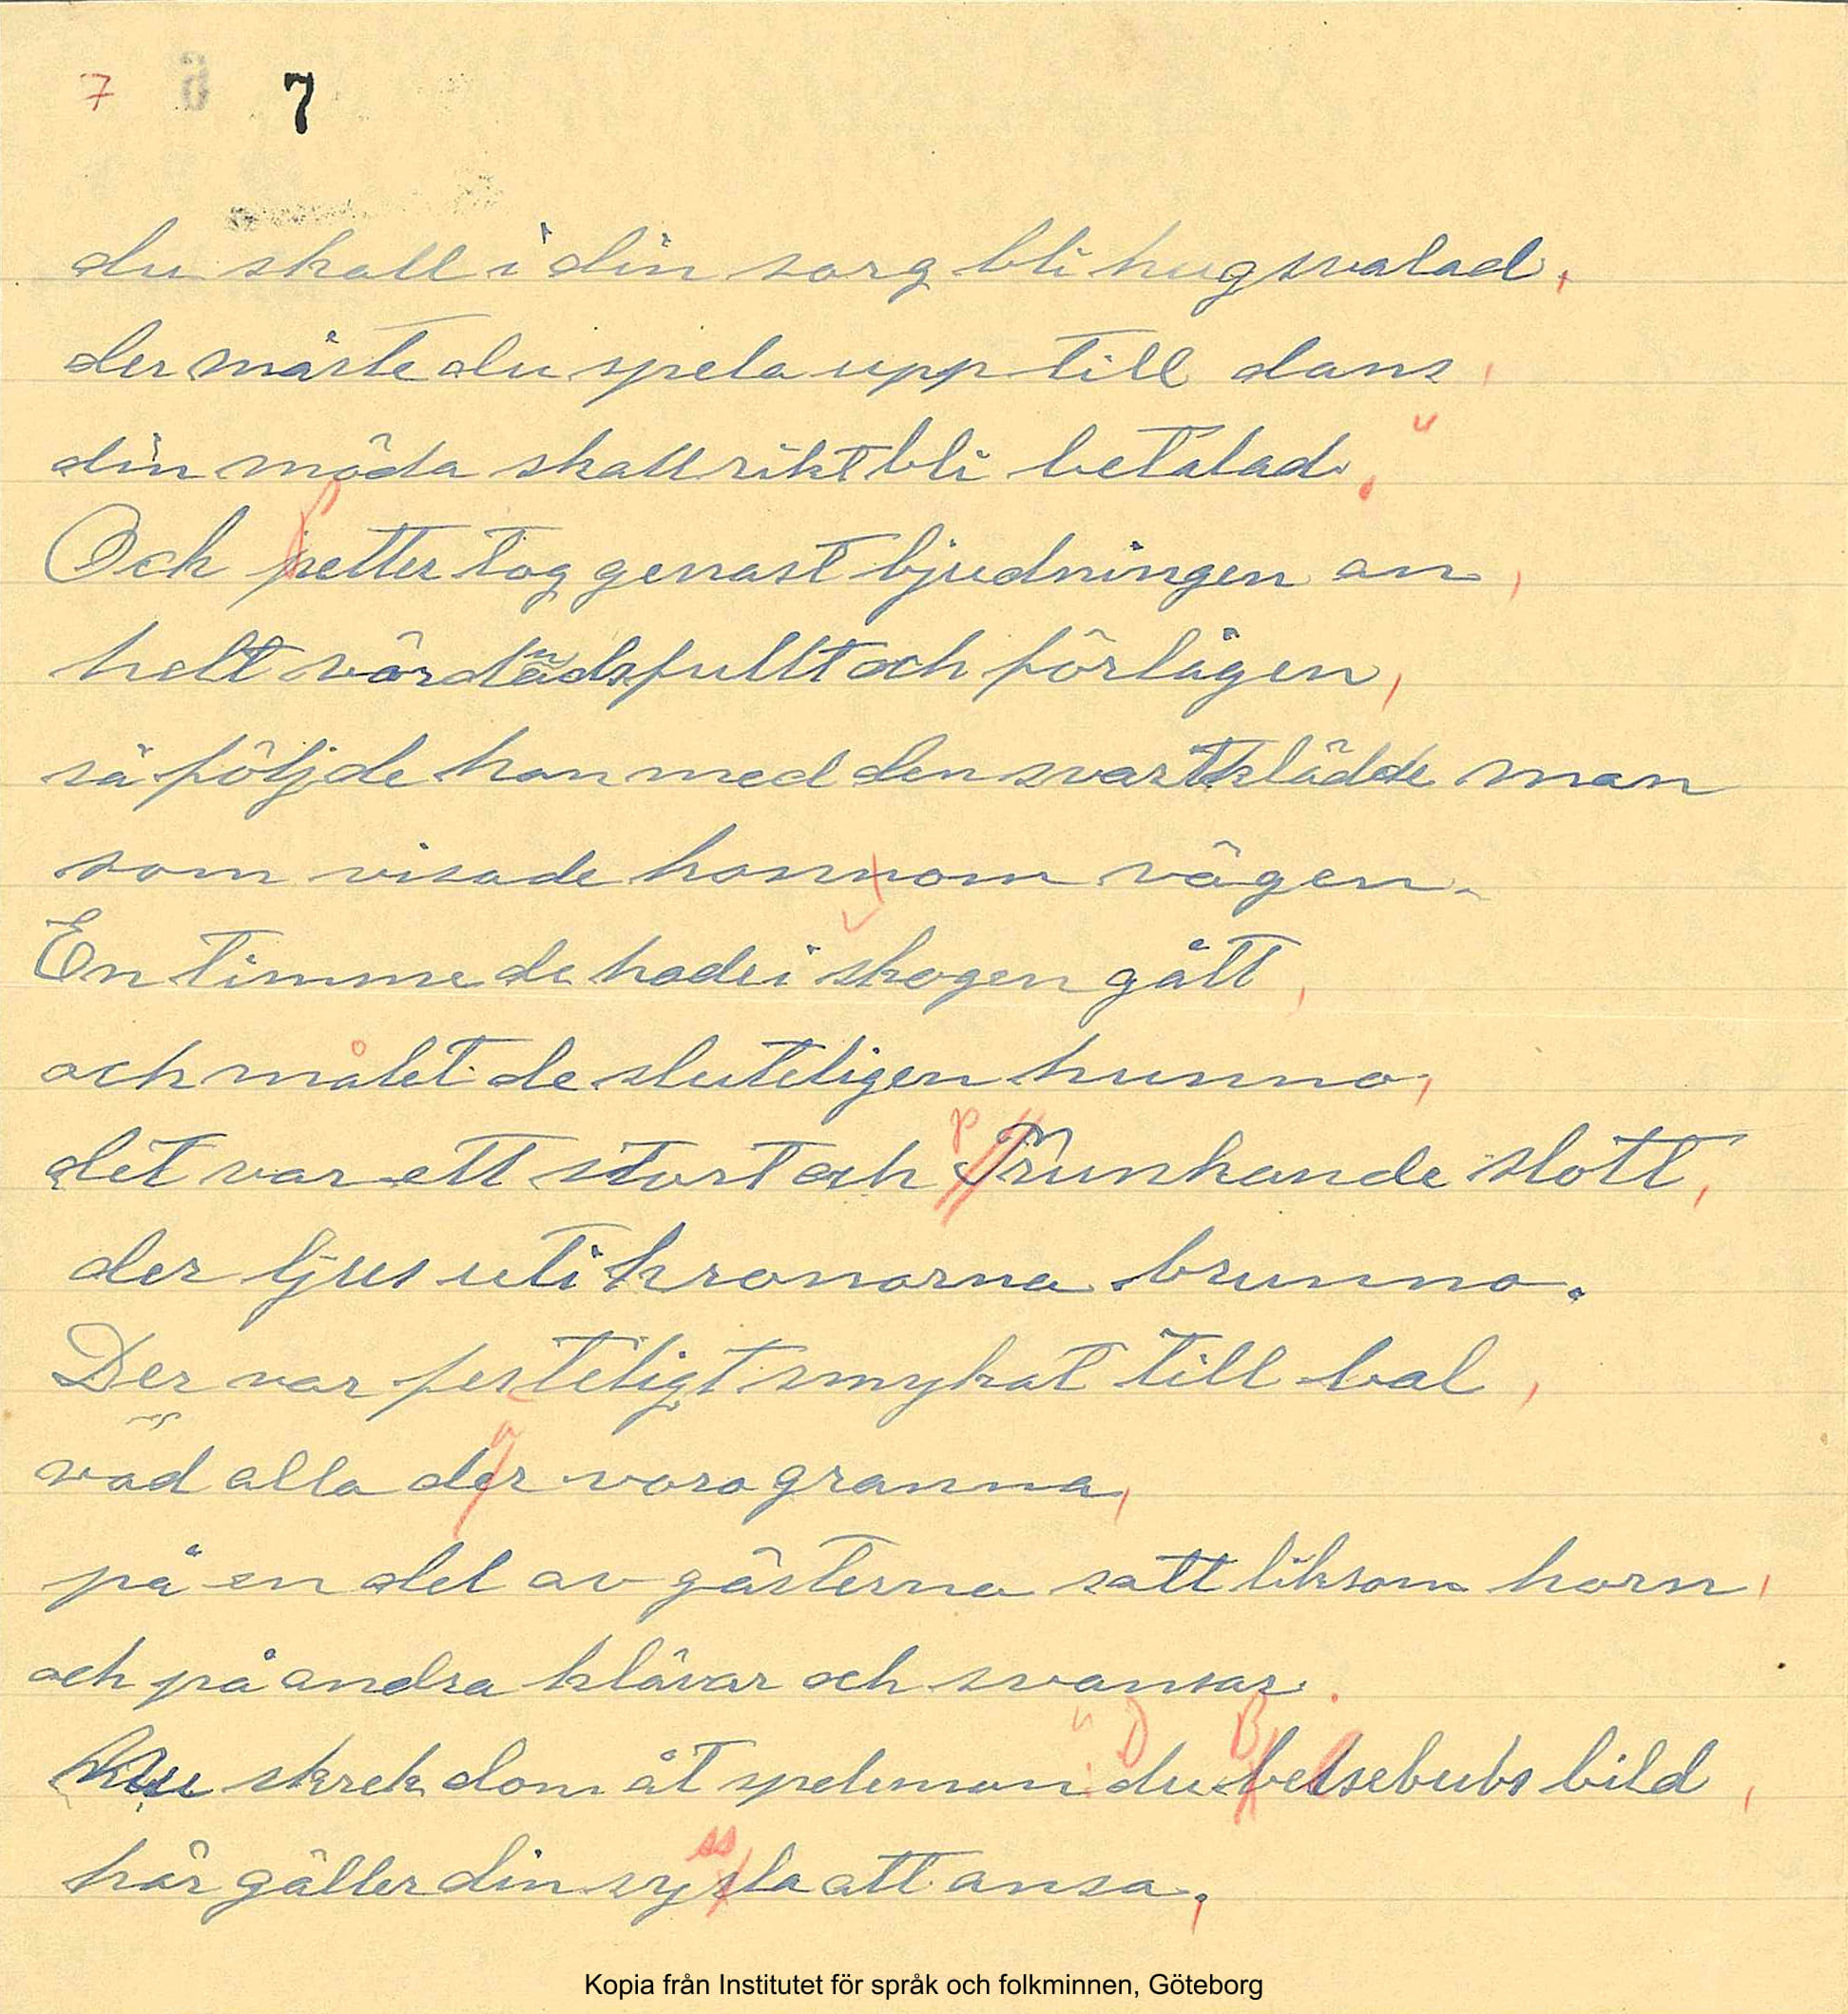 7 6 7
du skall i din sorg bli hugsvalad,
der måste du spela upp till dans,
din möda skall rikt bli betalad."
Och Petter tog genast bjudningen an,
helt vördnadsfullt och förlägen,
så följde han med den svartklädde man
som visade honom vägen.
En timme de hade i skogen gått,
och målet de sluteligen hunno,
det var ett stort och prunkande slott,
der ljus uti kronorna brunno.
Der var festeligt smykat till bal,
vad alla där voro granna,
på en del av gästerna satt liksom horn,
och på andra klövar och svansar.
Nu skrek dom åt speleman: "Du Belsebubs bild,
här gäller din syssla att ansa,
Kopia från Institutet för språk och folkminnen, Göteborg